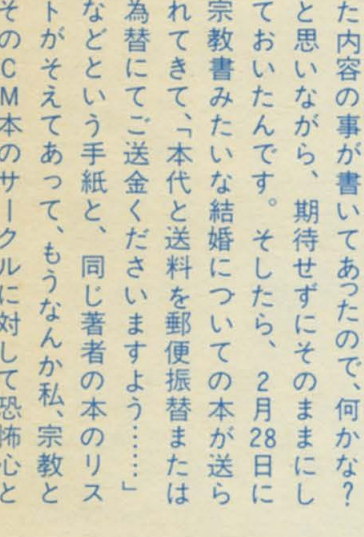 た内容の事が書いてあったので、何かな?
と思いながら、期待せずにそのままにし
ておいたんです。そしたら、2月28日に
宗教書みたいな結婚についての本が送ら
れてきて、「本代と送料を郵便振替または
為替にてご送金くださいますよう……」
などという手紙と、同じ著者の本のリス
トがそえてあって、もうなんか私、宗教と
そのCM本のサークルに対して恐怖心と